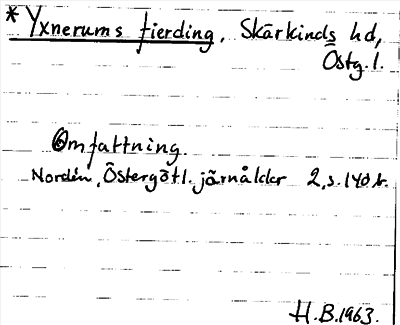 * Yxnerums fierding, Skärkinds hd,
Östg. l.
Omfattning.
Nordén, Östergötl. järnålder 2, s. 140 b.
H.B. 1963.